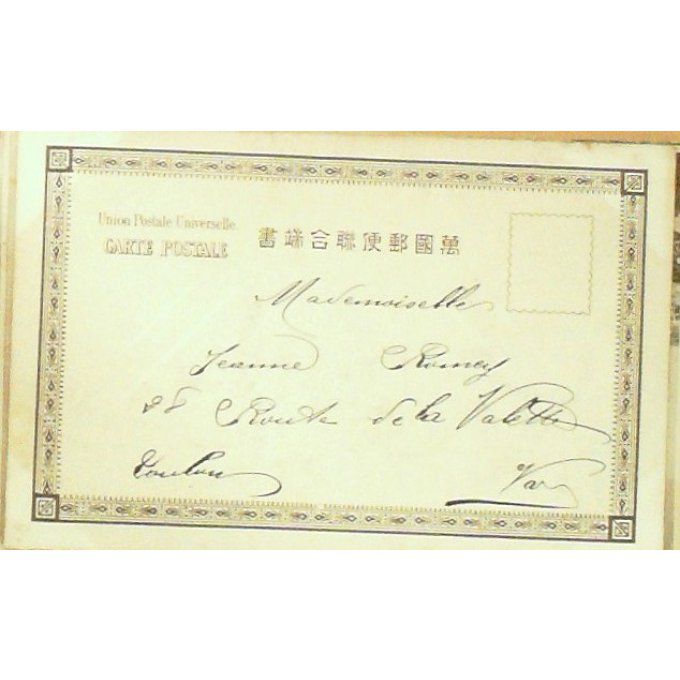 Union Postale Universelle.
CARTE POSTALE
書端合聯便郵國萬
Mademoiselle
Jeanne Romey
28 Route de la Valette
Toulon Var